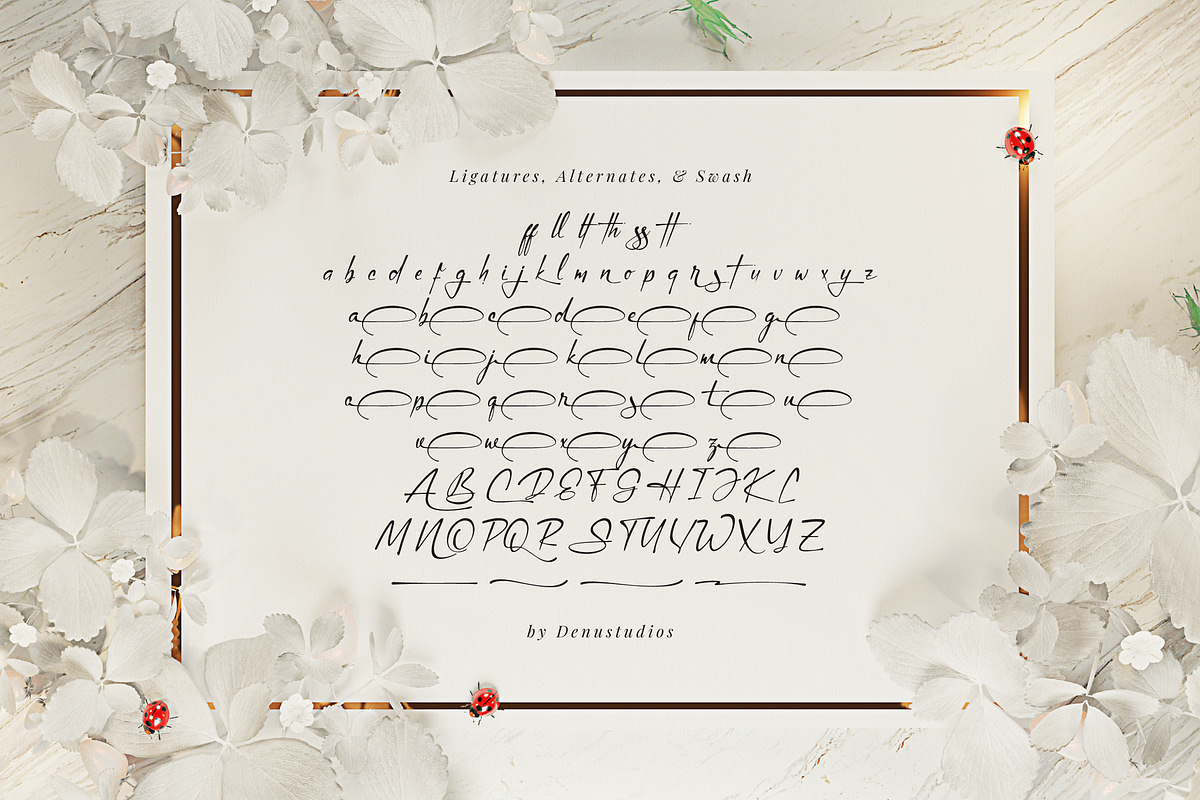 Ligatures, Alternates, & Swash
ff ll lt th ss tt
a b c d e f g h i j k l m n o p q r s t u v w x y z
a b c d e f g
h i j k l m n
o p q r s t u
v w x y z
A B C D E F G H I J K L
M N O P Q R S T U V W X Y Z
by Denustudios